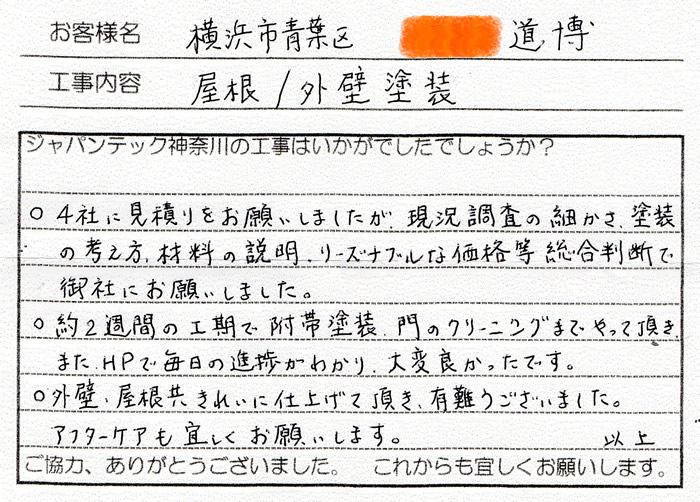 お客様名 横浜市青葉区 道博
工事内容 屋根/外壁塗装
ジャパンテック神奈川の工事はいかがでしたでしょうか?
○ 4社に見積りをお願いしましたが、現況調査の細かさ、塗装
の考え方、材料の説明、リーズナブルな価格等総合判断で
御社にお願いしました。
○ 約2週間の工期で附帯塗装、門のクリーニングまでやって頂き、
また、HPで毎日の進捗がわかり、大変良かったです。
○ 外壁、屋根共きれいに仕上げて頂き、有難うございました。
アフターケアも宜しくお願いします。 以上
ご協力、ありがとうございました。 これからも宜しくお願いします。